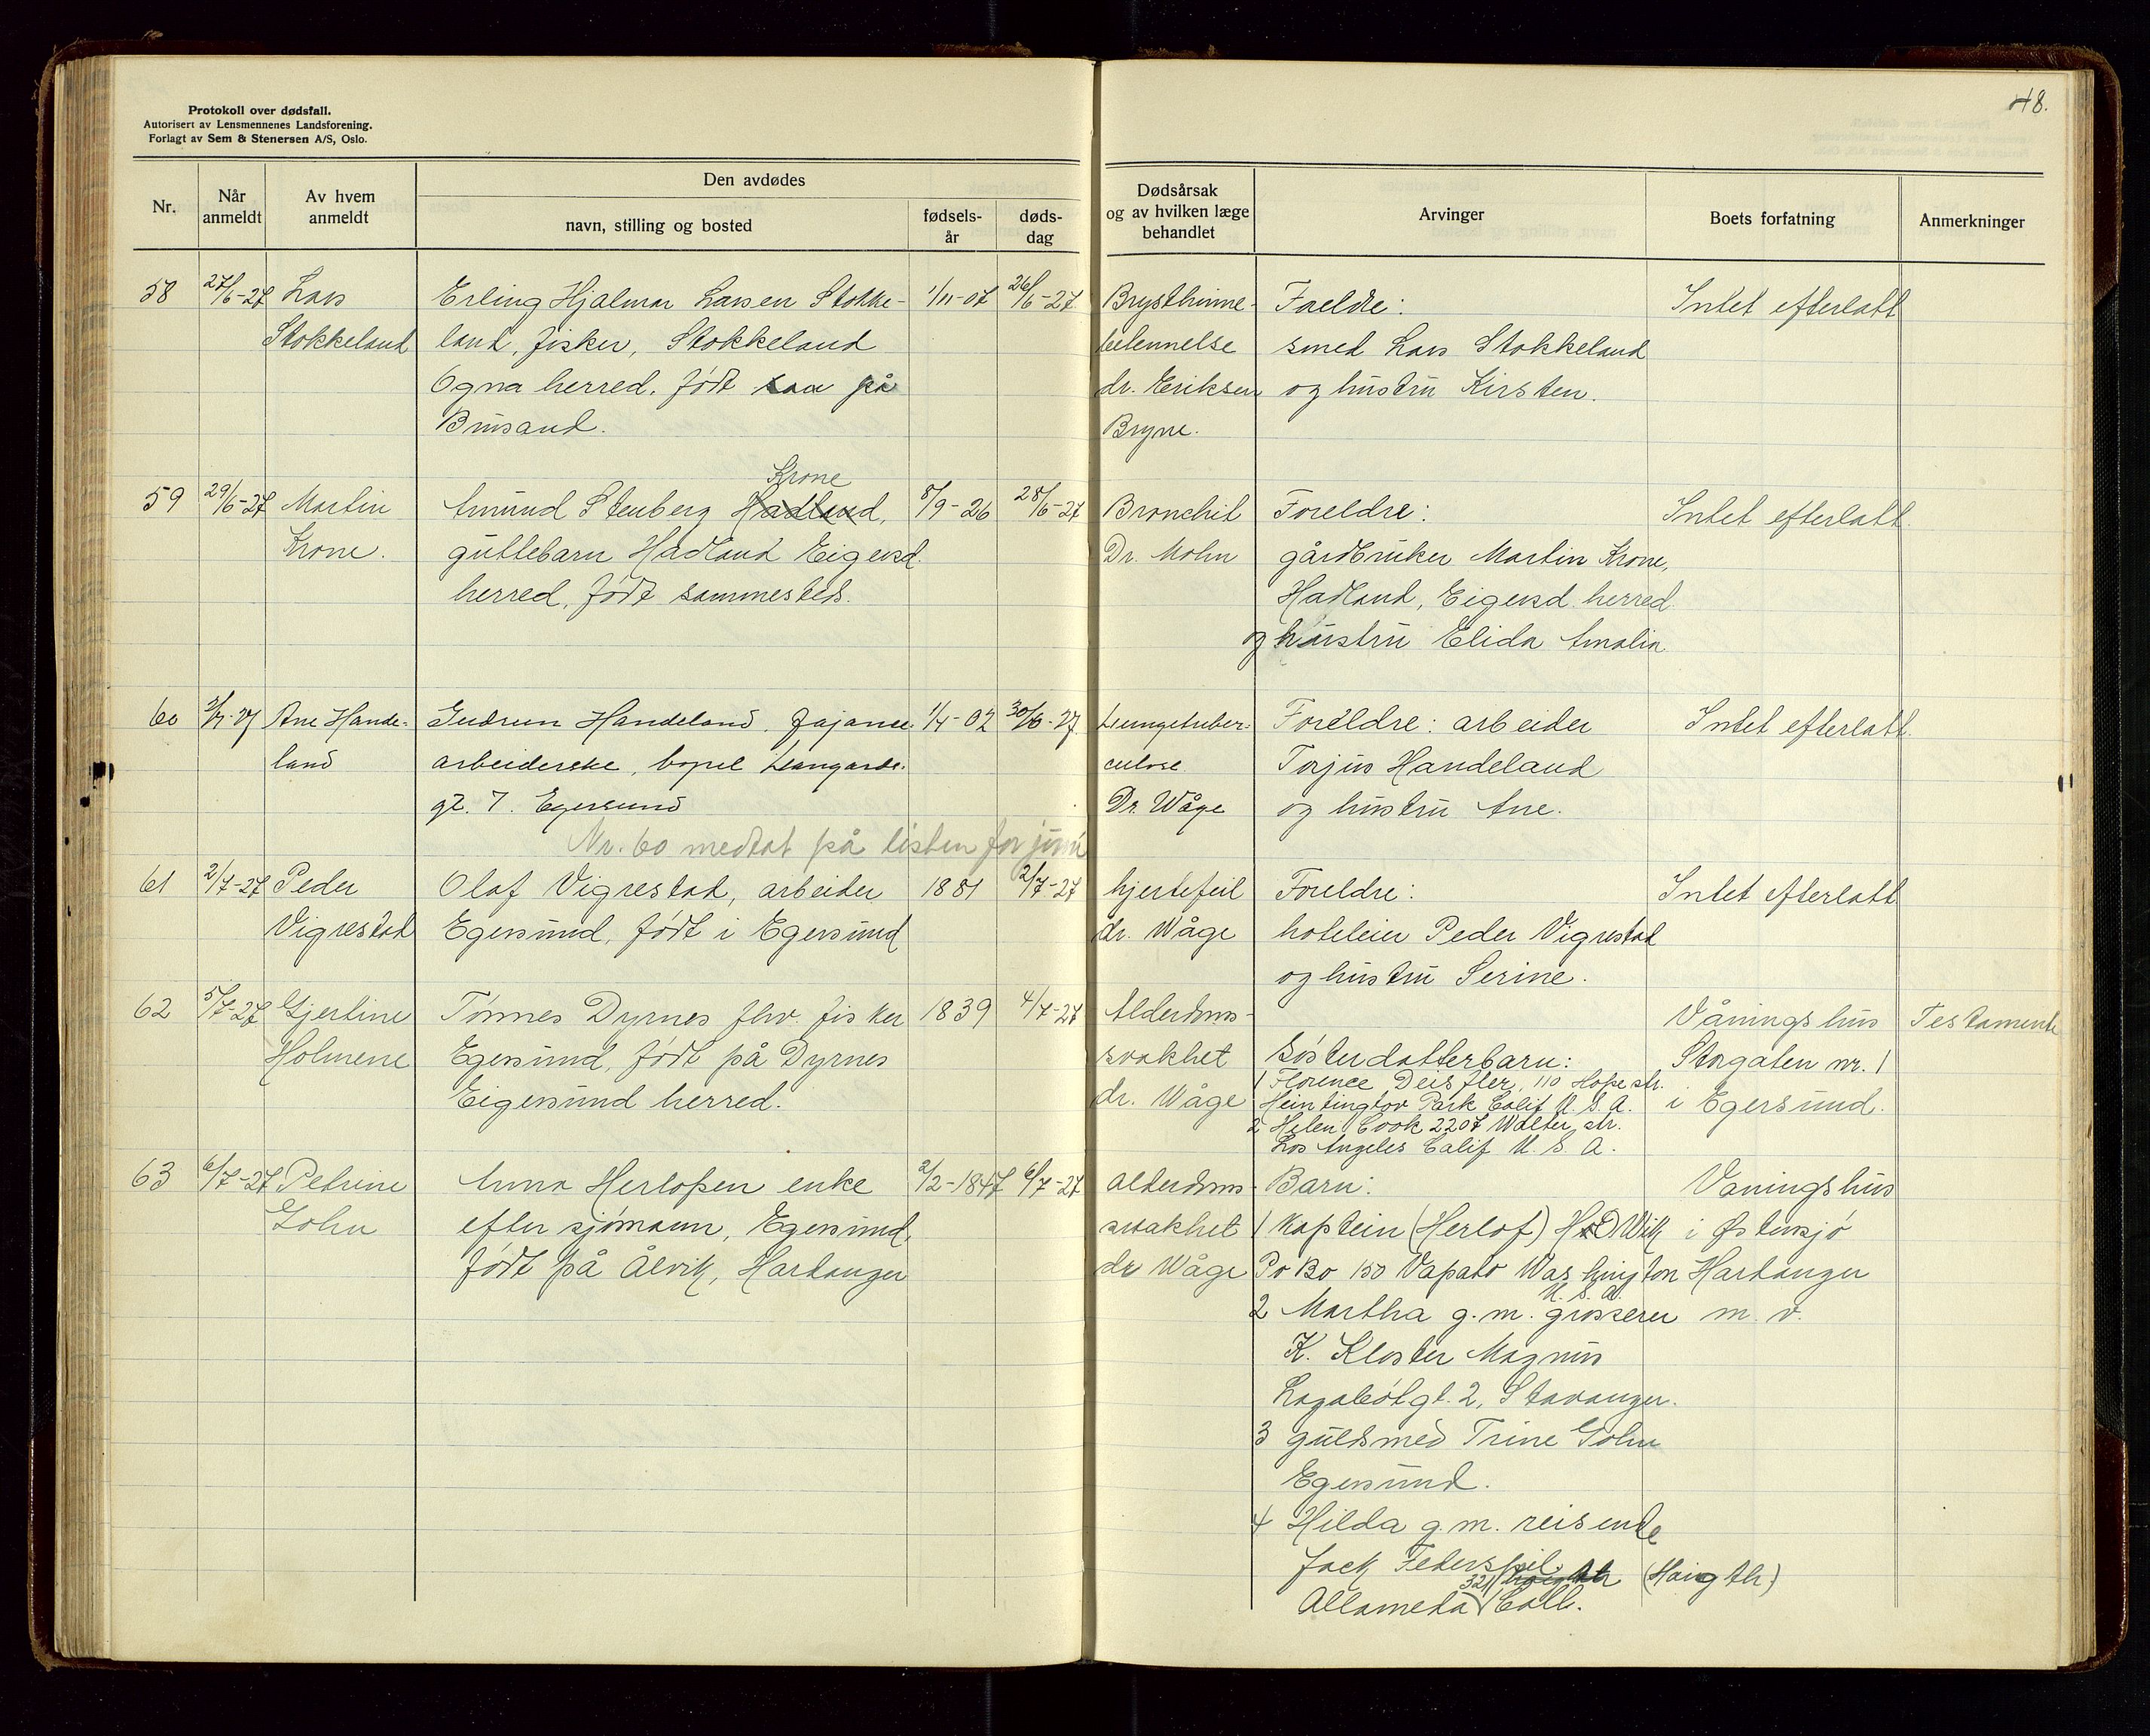 48.
Protokoll over dødsfall.
Autorisert av Lensmennenes Landsforening.
Forlagt av Sem & Stenersen A/S, Oslo.
Nr.
Når anmeldt
Av hvem anmeldt
Den avdødes
navn, stilling og bosted
fødsels-år
døds-dag
Dødsårsak og av hvilken læge behandlet
Arvinger
Boets forfatning
Anmerkninger
58 27/6-27 Lars Erling Hjalmar Larsen Stokke- 1/11-07 26/6-27 Brysthinne- Foreldre: Intet efterlatt
Stokkeland land, fisker, Stokkeland betennelse smed Lars Stokkeland
Ogna herred, født på dr. Eriksen og hustru Kirsten.
Brusand. Bryne.
Krone
59 29/6-27 Martin Amund Stenberg Hadland, 8/9-26 28/6-27 Bronchit Foreldre: Intet efterlatt.
Krone. guttebarn Hadland Eigersd. Dr. Mohn gårdbruker Martin Krone,
herred, født sammesteds. Hadland, Eigersd. herred
og hustru Elida Amalia
60 2/7-27 Ane Hande- Gudrun Handeland, fajance 1/4-02 30/6-27 Lungetuber- Foreldre: arbeider Intet efterlatt.
land arbeiderske, bopel culose Torjus Handeland
gt. 7. Egersund Dr. Wåge og hustru Ane.
Nr. 60 medtat på listen for juni
61 2/7-27 Peder Olaf Vigrestad, arbeider 1881 2/7-27 hjertefeil Foreldre: Intet efterlatt
Vigrestad Egersund, født i Egersund dr. Wåge hoteleier Peder Vigrestad
og hustru Serine.
62 5/7-27 Gjertine Tønnes Dyrnes fhv. fisker 1839 4/7-27 Alderdoms- Våningshus Testamente
Holmene Egersund, født på Dyrnes svakhet Søsterdatterbarn: Storgaten nr. 1
Eigersund herred. dr. Wåge 1 Florence Deisfler, 110 Hope str. i Egersund.
Heintingtov Park Calif U. S. A.
2 Helen Cook 2207 Walter str.
Los Angeles Calif U. S. A.
63 6/7-27 Petrine Anna Herlofsen enke 2/2-1847 6/7-27 alderdoms- Barn: Vaningshus
Gohn efter sjømann, Egersund, svakhet 1 Kaptein (Herlof) Wik i Østensjø
født på Ålvik, Hardanger dr Wåge Po Bo 150 Vapato Washington Hardanger
U. S. A.
2 Martha g. m. grosserer m. v.
K. Kloster Magnus
Lagabøtgt. 2, Stavanger.
3 guldsmed Trine Gohn
Egersund.
4 Hilda g. m. reisende
Jack Federspil (Haigth)
321
Allameda Calif.